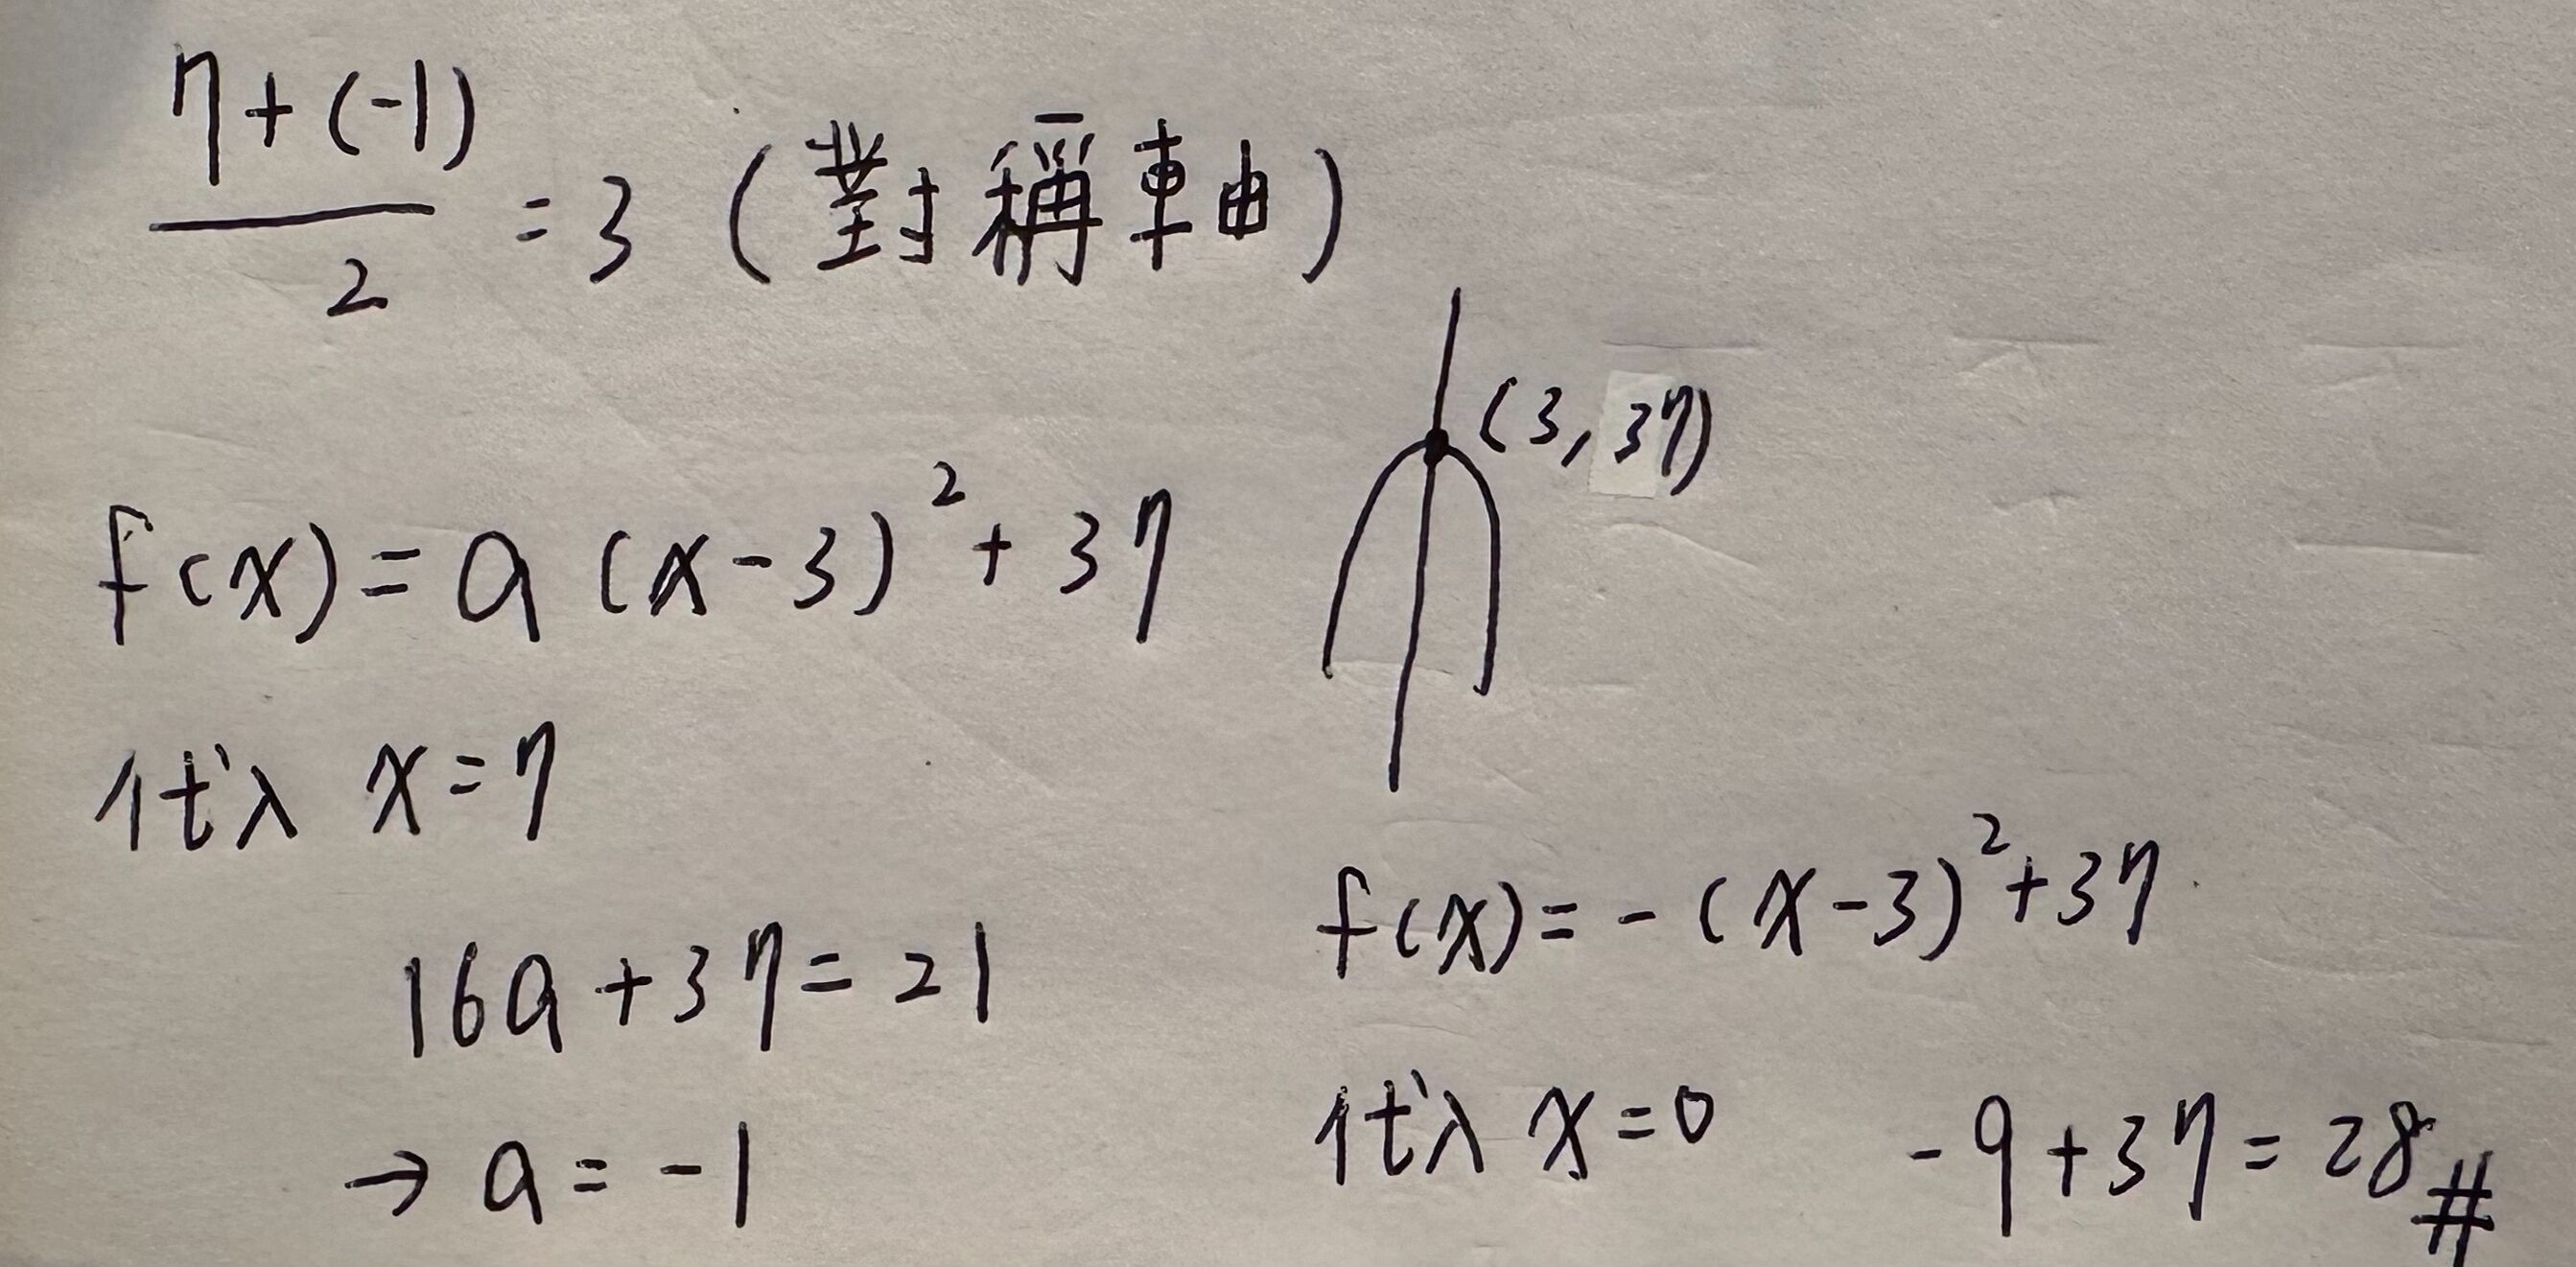 7+(-1)
2
=3 (對稱軸)
(3, 37)
f(x)=a(x-3)²+37
代入 x=7
16a+37=21
→ a=-1
f(x)=-(x-3)²+37
代入 x=0 -9+37=28#